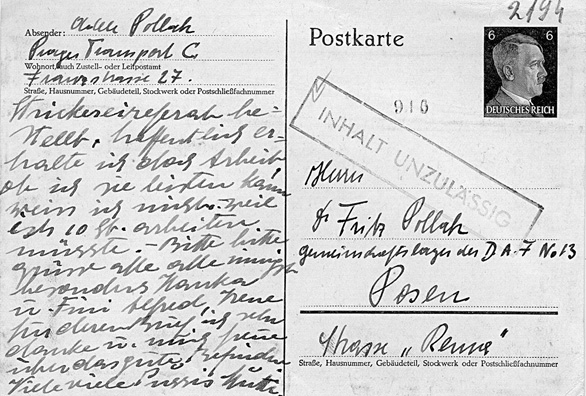 2194
Absender: Adele Pollak
Prager Transport C
Wohnort, auch Zustell- oder Leitpostamt
Franzstrasse 27.
Straße, Hausnummer, Gebäudeteil, Stockwerk oder Postschließfachnummer
Strickereireferat be-
stellt, hoffentlich er-
halte ich doch Arbeit
ob ich sie leisten kann
weiss ich nicht weil
ich 10 St. arbeiten
müsste. – Bitte bitte
grüsse alle alle
besonders Hanka
u. Fini Alfred, Irene
für deren Brief, ich sehr
danke u. mich freue
über das gute Befinden
Viele viele Bussis Mutti
Postkarte
6 6
DEUTSCHES REICH
910
INHALT UNZULÄSSIG
Herrn
Dr Fritz Pollak
Gemeinschaftslager des D.A.F No 13
Posen
Strasse „Renné"
Straße, Hausnummer, Gebäudeteil, Stockwerk oder Postschließfachnummer